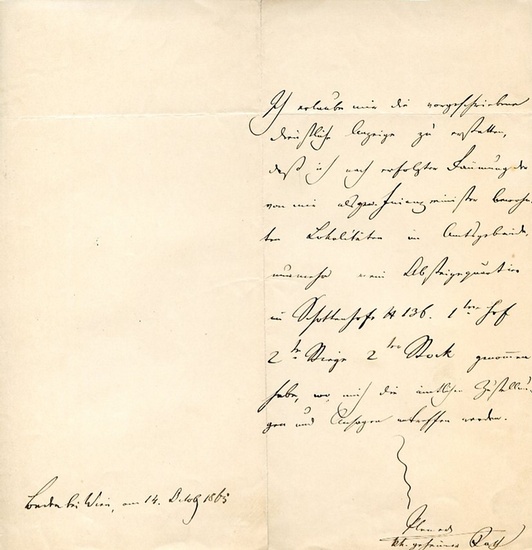 Ich erlaube mir die vorgeschriebene
dienstliche Anzeige zu erstatten,
daß ich nach erfolgter Räumung der
von mir als Finanzminister bewohn
ten Lokalitäten im Amtsgebäude,
nunmehr mein Absteigequartier
im Schottenhofe N 136. 1ter Hof
2te Stiege 2ter Stock genommen
habe, wo mich die amtlichen Zustellun
gen und Ansagen treffen werden.
Baden bei Wien, am 14. Octob 1865
Plener
kk. geheimer Rath